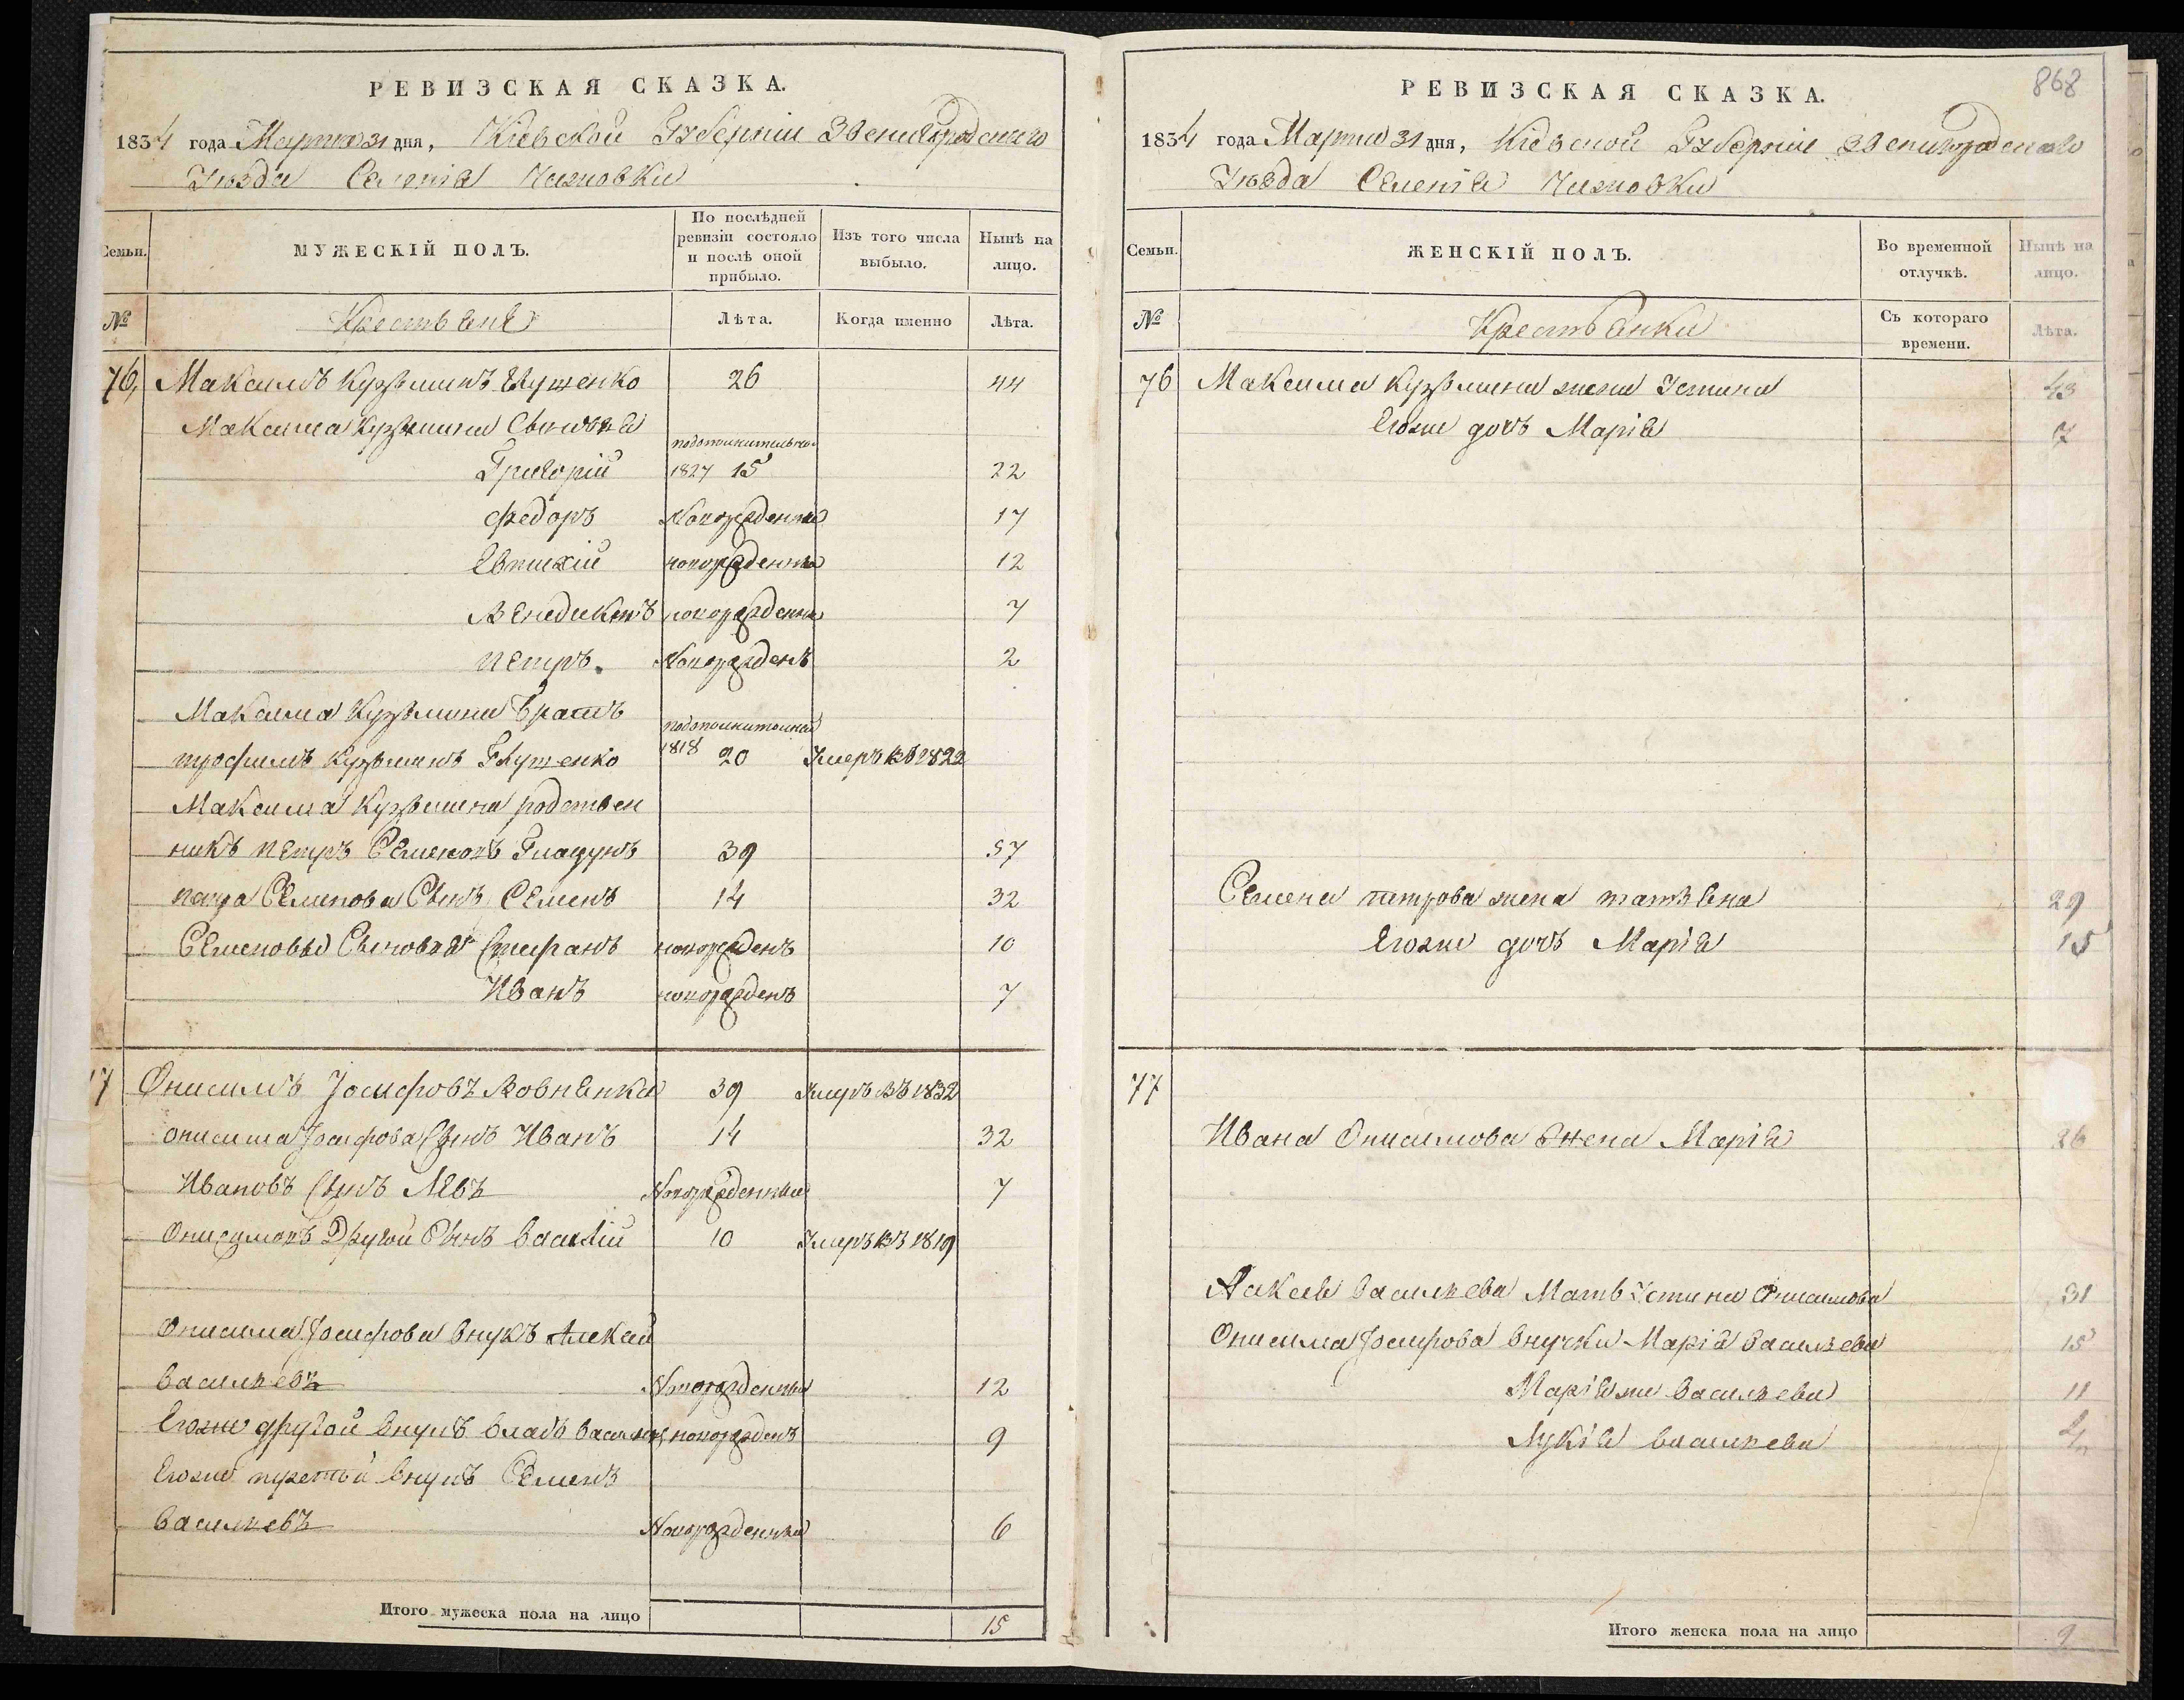 РЕВИЗСКАЯ СКАЗКА.
1834 года Марта 31 дня, Кіевской Губерніи Звенигородскаго
Уѣзда Селенія Чижовки
Семьи.
МУЖЕСКІЙ ПОЛЪ.
По послѣдней ревизіи состояло и послѣ оной прибыло.
Изъ того числа выбыло.
Нынѣ на лицо.
№
Крестьяне
Лѣта.
Когда именно
Лѣта.
76, Максимъ Кузьминъ Глущенко 26 44
Максима Кузьмина Сыновья
Григорій 1827 15 22
Федоръ Новорожденный 17
Евтихій новорожденный 12
Венедиктъ новорожденны 7
Петръ. Новорожденъ 2
Максима Кузьмина Братъ
трофимъ Кузьминъ Глущенко 1818 20 Умеръ въ 1822
Максима Кузьмина родствен
никъ Петръ Семеновъ Гладунъ 39 57
петра Семенова Сынъ Семенъ 14 32
Семеновы Сыновья Стефанъ новорожденъ 10
Иванъ новорожденъ 7
77 Онисимъ Іосифовъ Вовненко 39 Умеръ въ 1832
онисима Іосифова Сынъ Иванъ 14 32
Ивановъ Сынъ Левъ Новорожденный 7
Онисимовъ Другой Сынъ василій 10 Умеръ въ 1819
Онисима Іосифова внукъ Алексей
васильевъ Новорожденный 12
Егоже другой внукъ власъ новорожденъ 9
Егоже третій внукъ Семенъ
васильевъ Новорожденный 6
Итого мужеска пола на лицо 15
868
РЕВИЗСКАЯ СКАЗКА.
1834 года Марта 31 дня, Кіевской Губерніи Звенигородскаго
Уѣзда Селенія Чижовки
Семьи.
ЖЕНСКІЙ ПОЛЪ.
Во временной отлучкѣ.
Нынѣ на лицо.
№
Крестьянки
Съ котораго времени.
Лѣта.
76 Максима Кузьмина жена Устина 43
Егоже дочь Марія 7
Семена петрова жена татьяна 29
Егоже дочь Марія 15
77
Ивана Онисимова жена Марія 26
васильева Мать Устина Онисимова 31
Онисима Іосифова внучки Марія васильева 15
васильева 11
Лукія васильева
Итого женска пола на лицо 9